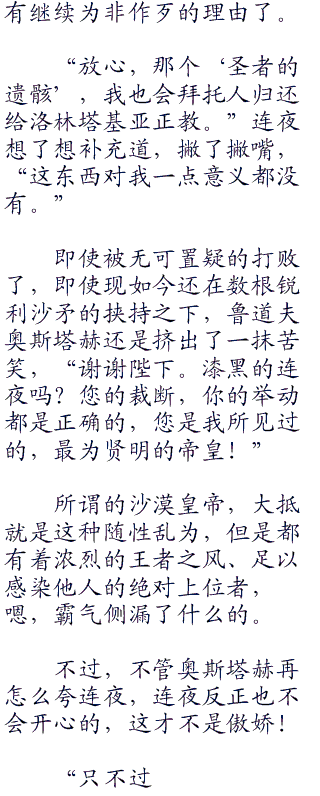 有继续为非作歹的理由了。
“放心，那个‘圣者的
遗骸’，我也会拜托人归还
给洛林塔基亚正教。”连夜
想了想补充道，撇了撇嘴，
“这东西对我一点意义都没
有。”
即使被无可置疑的打败
了，即使现如今还在数根锐
利沙矛的挟持之下，鲁道夫
奥斯塔赫还是挤出了一抹苦
笑，“谢谢陛下。漆黑的连
夜吗？您的裁断，你的举动
都是正确的，您是我所见过
的，最为贤明的帝皇！”
所谓的沙漠皇帝，大抵
就是这种随性乱为，但是都
有着浓烈的王者之风、足以
感染他人的绝对上位者，
嗯，霸气侧漏了什么的。
不过，不管奥斯塔赫再
怎么夸连夜，连夜反正也不
会开心的，这才不是傲娇！
“只不过